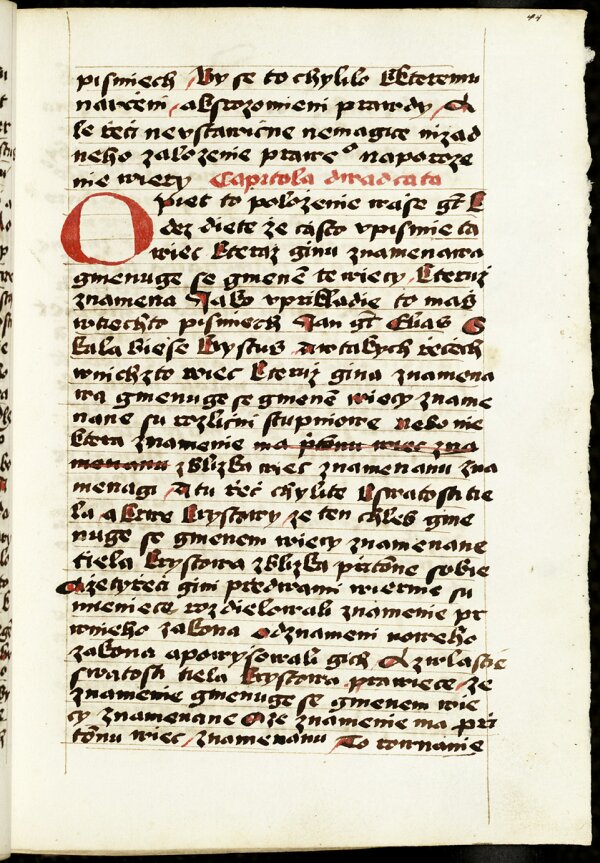 44
pismiech By se to chylilo Kkteremu
narčeni, a k srozomieni prawdy, A
le řeči neustawične nemagice nizad
neho založenie prawe° naporoze
nie wiery Capitola dwadcata
Opiet to položenie wase gt K
dez diete že často w pismie ta
wiec kteraz ginu znamenawa
gmenuge se gmenē te wiecy, kteruž
znamena Jako w přikladie to maš
wtiechto pismiech Jan gt Elias S
kala Biese krystus A w takych řečech
wnichzto wiec kteraz ginu znamena
wa gmenuge se gmenē wiecy zname
nane su rozlični stupniowe nebo nie
ktera znamenie ma přtōnu wiec zna
menanu zblizka wiec znamenanu zna
menagi A tu řeč chylite k swatosti tie
la a krwe krystowy, že ten chleb gme
nuge se gmenem wiecy znamenane
tiela krystowa zblizka přitōne sobie
A že ty řeči gini před wami wiernie su
mieniece rozdielowali znamenie pr
wnieho zakona od znameni noweho
zakona a powysowali gich A zwlastie
swatosti tiela krystowa prawiece, že
znamenie gmenuge se gmenem wie
cy znamenane A že znamenie ma při
tōnu wiec znamenanu To rownanie